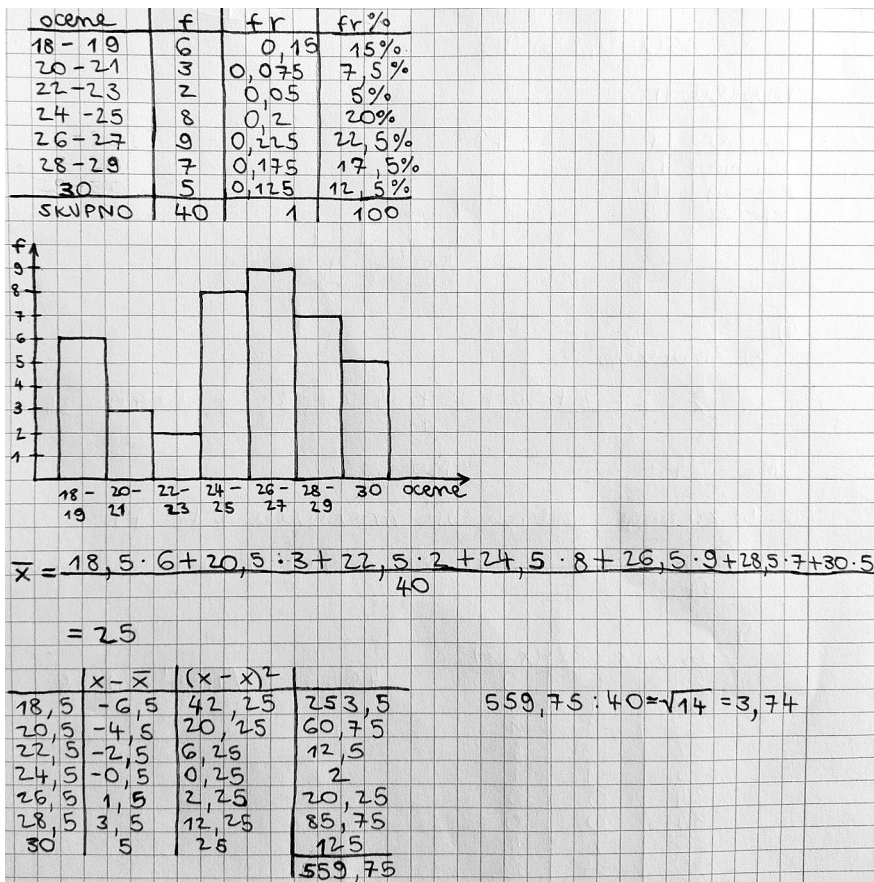 ocene f fr fr%
18-19 6 0,15 15%
20-21 3 0,075 7,5%
22-23 2 0,05 5%
24-25 8 0,2 20%
26-27 9 0,225 22,5%
28-29 7 0,175 17,5%
30 5 0,125 12,5%
SKUPNO 40 1 100
f
9
8
7
6
5
4
3
2
1
18-19 20-21 22-23 24-25 26-27 28-29 30 ocene
x̄ = 18,5·6+20,5:3+22,5·2+24,5·8+26,5·9+28,5·7+30·5
40
= 25
x-x̄ (x-x)²
18,5 -6,5 42,25 253,5
20,5 -4,5 20,25 60,75
22,5 -2,5 6,25 12,5
24,5 -0,5 0,25 2
26,5 1,5 2,25 20,25
28,5 3,5 12,25 85,75
30 5 25 125
559,75
559,75:40≈√14 = 3,74